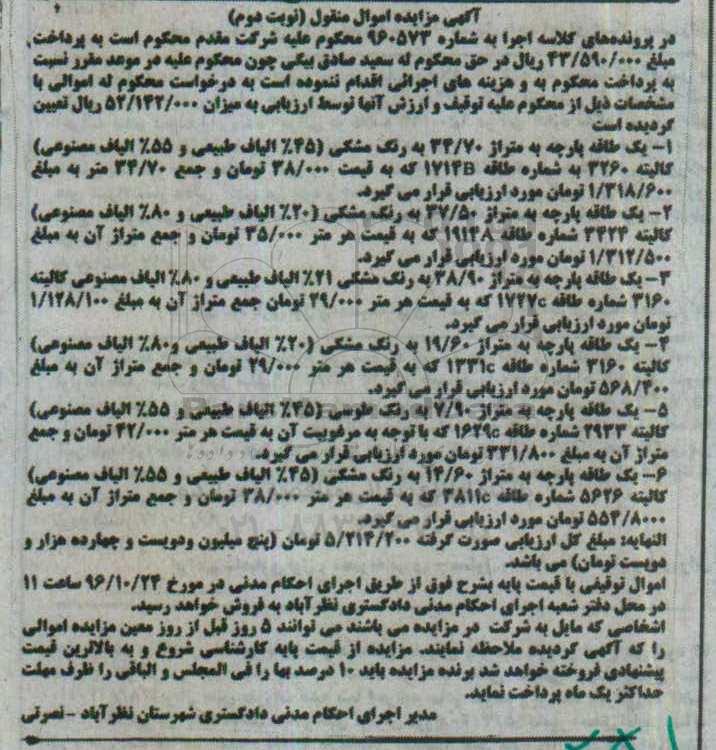 آگهی مزایده اموال منقول (نوبت دوم)
در پرونده‌های کلاسه اجرا به شماره ۹۶۰۵۷۳ محکوم علیه شرکت مقدم محکوم است به پرداخت
مبلغ ۴۳/۵۹۰/۰۰۰ ریال در حق محکوم له سعید صادق بیگی چون محکوم علیه در موعد مقرر نسبت
به پرداخت محکوم به و هزینه های اجرائی اقدام ننموده است به درخواست محکوم له اموالی با
مشخصات ذیل از محکوم علیه توقیف و ارزش آنها توسط ارزیابی به میزان ۵۲/۱۴۲/۰۰۰ ریال تعیین
گردیده است
۱– یک طاقه پارچه به متراژ ۳۴/۷۰ به رنگ مشکی (۴۵٪ الیاف طبیعی و ۵۵٪ الیاف مصنوعی)
کالیته ۳۲۶۰ به شماره طاقه ۱۷۱۴B که به قیمت ۳۸/۰۰۰ تومان و جمع ۳۴/۷۰ متر به مبلغ
۱/۳۱۸/۶۰۰ تومان مورد ارزیابی قرار می گیرد.
۲– یک طاقه پارچه به متراژ ۳۷/۵۰ به رنگ مشکی (۲۰٪ الیاف طبیعی و ۸۰٪ الیاف مصنوعی)
کالیته ۳۴۲۴ شماره طاقه ۱۹۱۴۸ که به قیمت هر متر ۳۵/۰۰۰ تومان و جمع متراژ آن به مبلغ
۱/۳۱۲/۵۰۰ تومان مورد ارزیابی قرار می گیرد.
۳– یک طاقه پارچه به متراژ ۳۸/۹۰ به رنگ مشکی ۲۱٪ الیاف طبیعی و ۸۰٪ الیاف مصنوعی کالیته
۳۱۶۰ شماره طاقه ۱۷۲۷c که به قیمت هر متر ۲۹/۰۰۰ تومان جمع متراژ آن به مبلغ ۱/۱۲۸/۱۰۰
تومان مورد ارزیابی قرار می گیرد.
۴– یک طاقه پارچه به متراژ ۱۹/۶۰ به رنگ مشکی (۲۰٪ الیاف طبیعی و ۸۰٪ الیاف مصنوعی)
کالیته ۳۱۶۰ شماره طاقه ۱۳۳۱c که به قیمت هر متر ۲۹/۰۰۰ تومان و جمع متراژ آن به مبلغ
۵۶۸/۴۰۰ تومان مورد ارزیابی قرار می گیرد.
۵– یک طاقه پارچه به متراژ ۷/۹۰ به رنگ طوسی (۴۵٪ الیاف طبیعی و ۵۵٪ الیاف مصنوعی)
کالیته ۲۹۳۳ شماره طاقه ۱۶۲۹c که با توجه به مرغوبیت آن به قیمت هر متر ۴۲/۰۰۰ تومان و جمع
متراژ آن به مبلغ ۳۳۱/۸۰۰ تومان مورد ارزیابی قرار می گیرد.
۶– یک طاقه پارچه به متراژ ۱۴/۶۰ به رنگ مشکی (۴۵٪ الیاف طبیعی و ۵۵٪ الیاف مصنوعی)
کالیته ۵۶۲۶ شماره طاقه ۳۸۱۱c که به قیمت هر متر ۳۸/۰۰۰ تومان و جمع متراژ آن به مبلغ
۵۵۴/۸۰۰۰ تومان مورد ارزیابی قرار می گیرد.
النهایه: مبلغ کل ارزیابی صورت گرفته ۵/۲۱۴/۲۰۰ تومان (پنج میلیون ودویست و چهارده هزار و
دویست تومان) می باشد.
اموال توقیفی با قیمت پایه بشرح فوق از طریق اجرای احکام مدنی در مورخ ۹۶/۱۰/۲۴ ساعت ۱۱
در محل دفتر شعبه اجرای احکام مدنی دادگستری نظرآباد به فروش خواهد رسید.
اشخاصی که مایل به شرکت در مزایده می باشند می توانند ۵ روز قبل از روز معین مزایده اموالی
را که آگهی گردیده ملاحظه نمایند. مزایده از قیمت پایه کارشناسی شروع و به بالاترین قیمت
پیشنهادی فروخته خواهد شد برنده مزایده باید ۱۰ درصد بها را فی المجلس و الباقی را ظرف مهلت
حداکثر یک ماه پرداخت نماید.
مدیر اجرای احکام مدنی دادگستری شهرستان نظرآباد – نصرتی